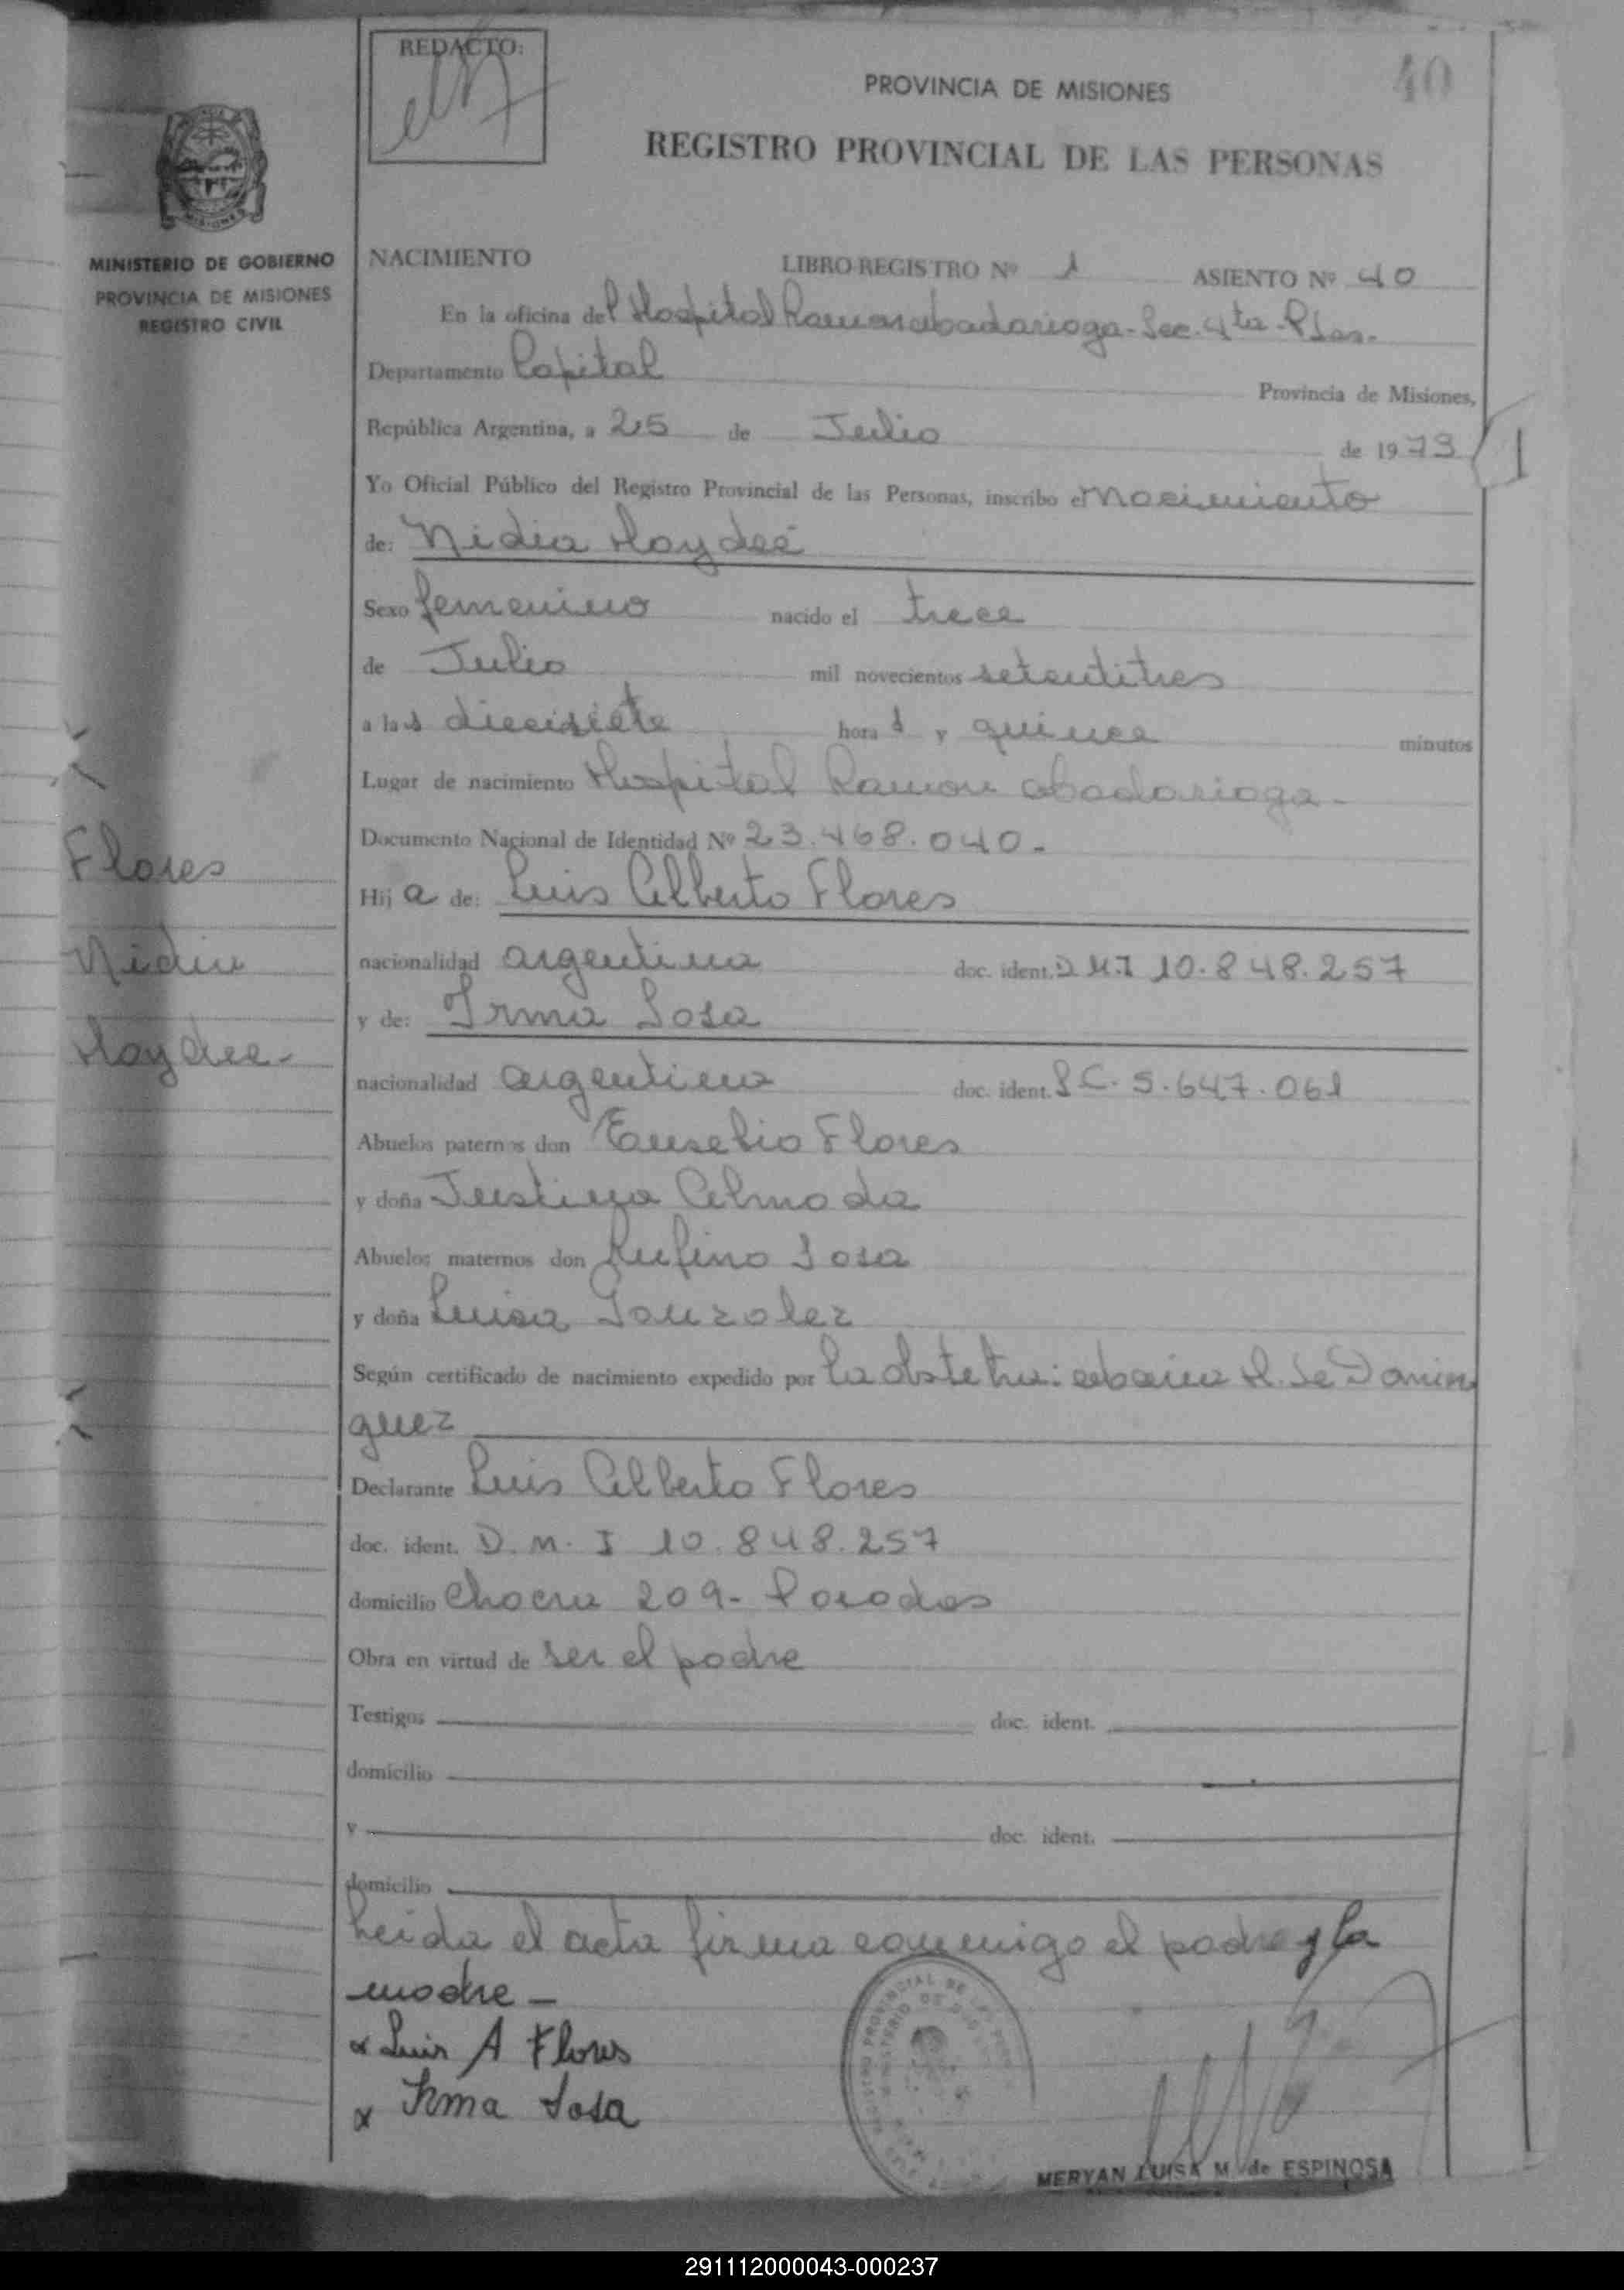 REDACTO:
40
PROVINCIA DE MISIONES
REGISTRO PROVINCIAL DE LAS PERSONAS
MISIONES
MINISTERIO DE GOBIERNO
PROVINCIA DE MISIONES
REGISTRO CIVIL
NACIMIENTO LIBRO REGISTRO Nº 1 ASIENTO Nº 40
En la oficina del Hospital Ramon abadarioga - Sec. 4ta - Psas.
Departamento Capital Provincia de Misiones,
República Argentina, a 25 de Julio de 1973
Yo Oficial Público del Registro Provincial de las Personas, inscribo el Nacimiento
de: Nidia Haydeé
Sexo femenino nacido el trece
de Julio mil novecientos setentitres
a las diecisiete horas y quince minutos
Lugar de nacimiento Hospital Ramon abadarioga -
Documento Nacional de Identidad Nº 23.468.040.-
Hija de: Luis Alberto Flores
nacionalidad argentina doc. ident. D.M.I 10.848.257
y de: Irma Sosa
nacionalidad argentina doc. ident. L C. 5.647.061
Abuelos paternos don Eusebio Flores
y doña Justina Almada
Abuelos maternos don Rufino Sosa
y doña Luisa Gonzalez
Según certificado de nacimiento expedido por la obstetri: R. de Domin
guez
Declarante Luis Alberto Flores
doc. ident. D. M. I 10.848.257
domicilio Chacra 209 - Posadas
Obra en virtud de ser el padre
Testigos doc. ident.
domicilio
y doc. ident.
domicilio
Leida el acta firma conmigo el padre y la
madre -
x Luis A Flores
x Irma Sosa
Flores
Nidia
Haydee -
MERYAN LUISA M. de ESPINOSA
291112000043-000237